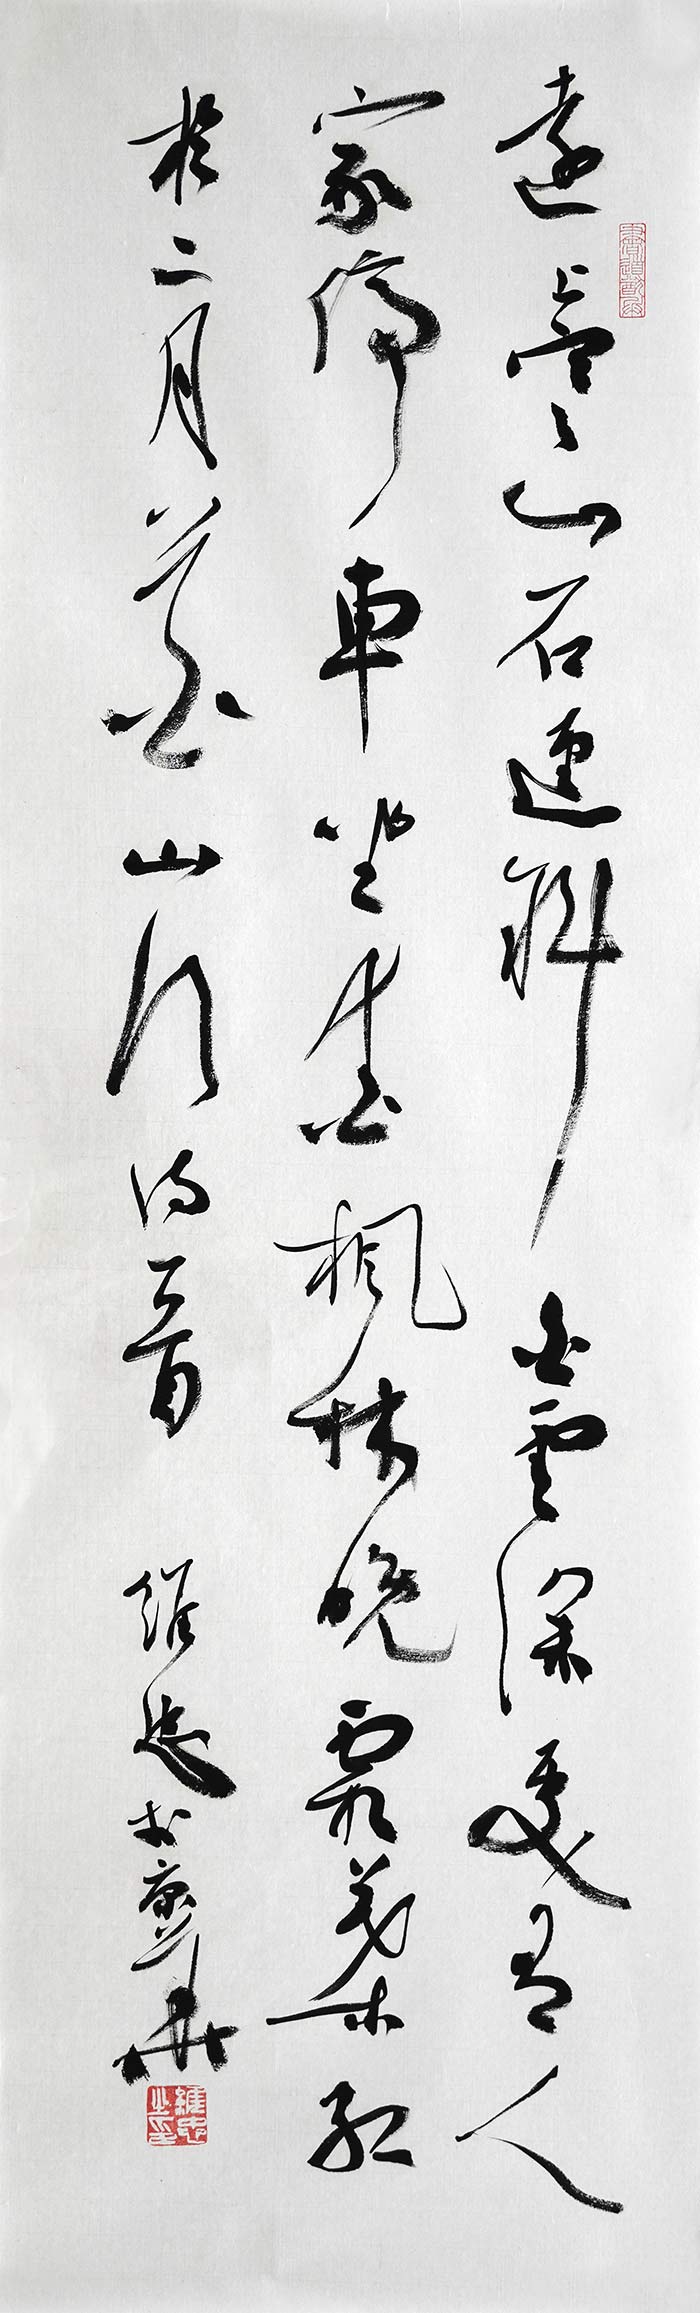 遠上寒山石逕斜白雲深處有人
家停車坐愛楓林晚霜葉紅
於二月花山行詩一首 維忠於
維忠之印